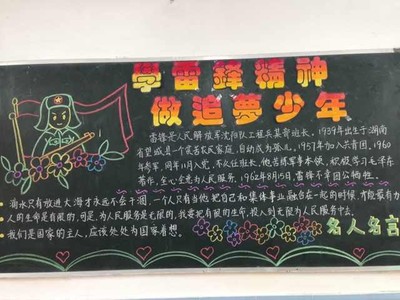 學雷鋒精神
做追夢少年
雷锋是人民解放军沈阳队工程兵某部班长，1939年出生于湖南
省望城县一个贫苦农民家庭，自幼成为孤儿，1957年加入共青团，1960
年参军，同年11月入党，不久任班长，他苦练军事本领，积极学习毛泽东
著作，全心全意为人民服务，1962年8月15日，雷锋不幸因公牺牲。
滴水只有放进大海才永远不会干涸，一个人只有当他把自己和集体事业融合在一起的时候，才能最有力
人的生命是有限的，可是，为人民服务是无限的，我要把有限的生命，投入到无限为人民服务中去。
我们是国家的主人，应该处处为国家着想。
名人名言